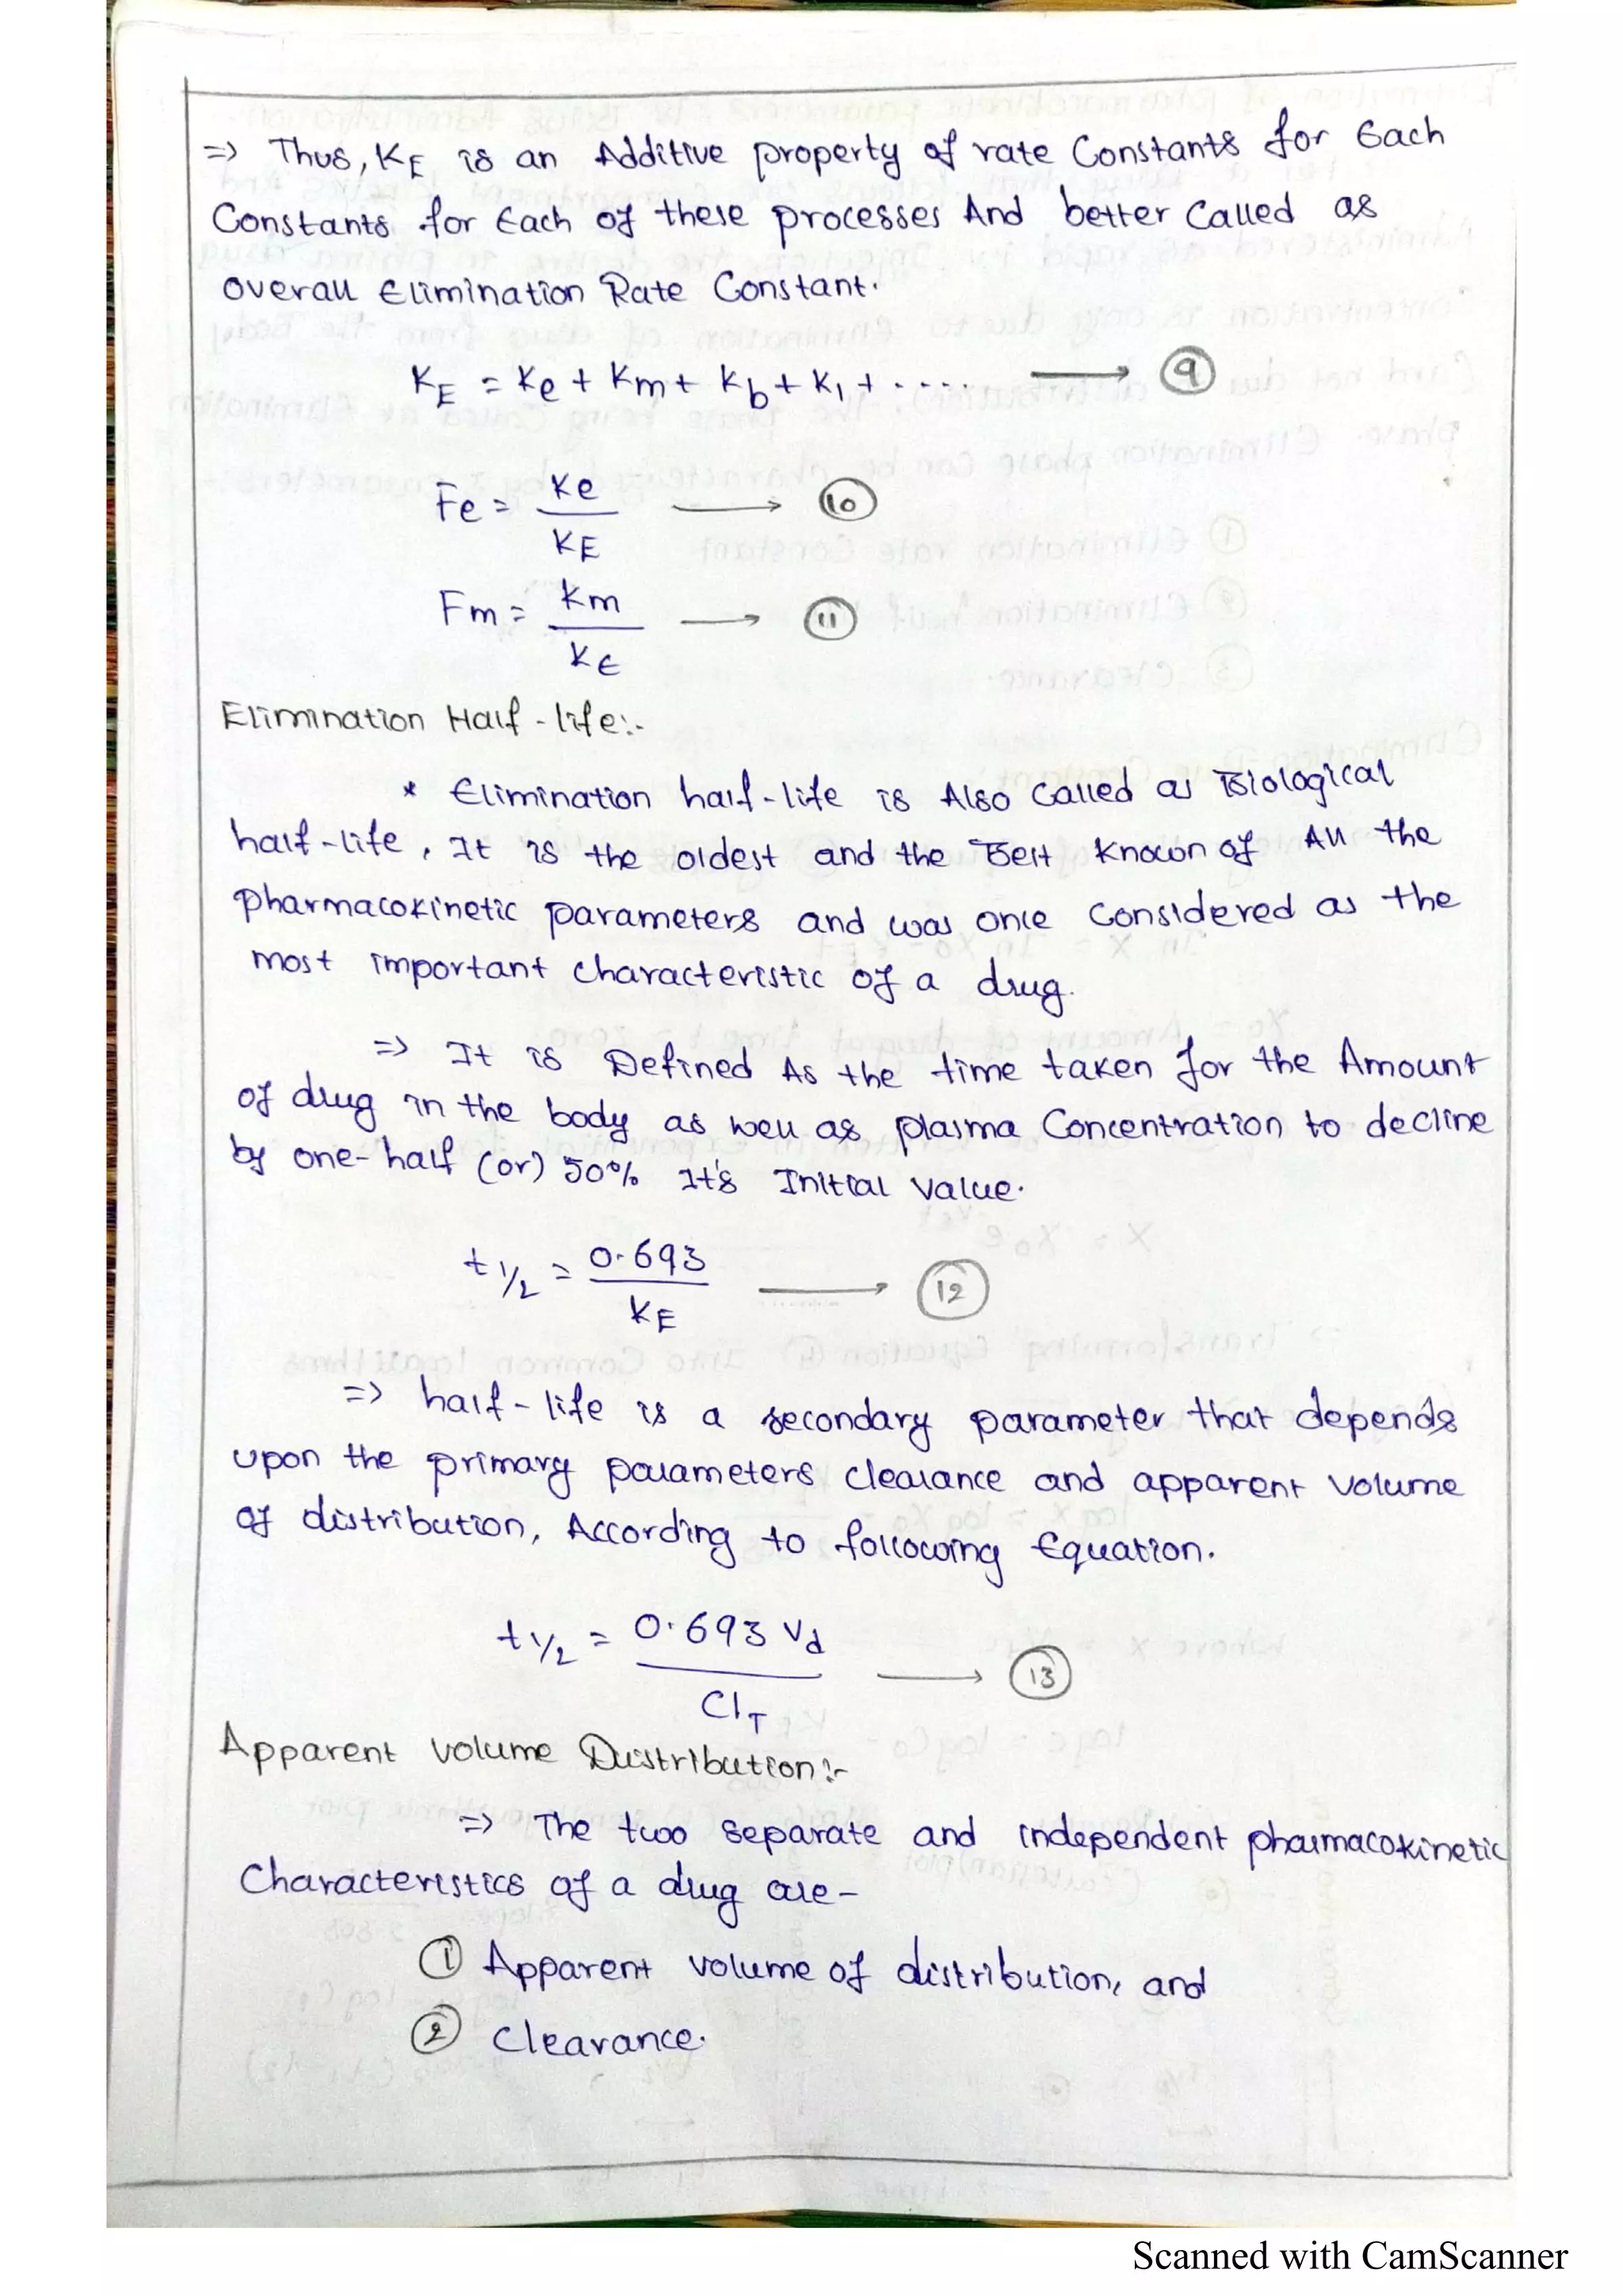 => Thus, KE is an Additive property of rate Constants for Each
Constants for Each of these processes And better Called as
overall Elimination Rate Constant.
KE = Ke + Km + Kb + K1 + ..... → 9
Fe = Ke / KE → 10
Fm = Km / KE → 11
Elimination Half-life:-
* Elimination half-life is Also Called as Biological
half-life, It is the oldest and the Best Known of All the
pharmacokinetic parameters and was once Considered as the
most important characteristic of a drug.
=> It is Defined As the time taken for the Amount
of drug in the body as well as plasma Concentration to decline
by one-half (or) 50% It's Initial value.
t 1/2 = 0.693 / KE → 12
=> half-life is a secondary parameter that depends
upon the primary parameters clearance and apparent volume
of distribution, According to following Equation.
t 1/2 = 0.693 Vd / ClT → 13
Apparent volume Distribution:-
=> The two separate and independent pharmacokinetic
Characteristics of a drug are-
1 Apparent volume of distribution, and
2 Clearance.
Scanned with CamScanner